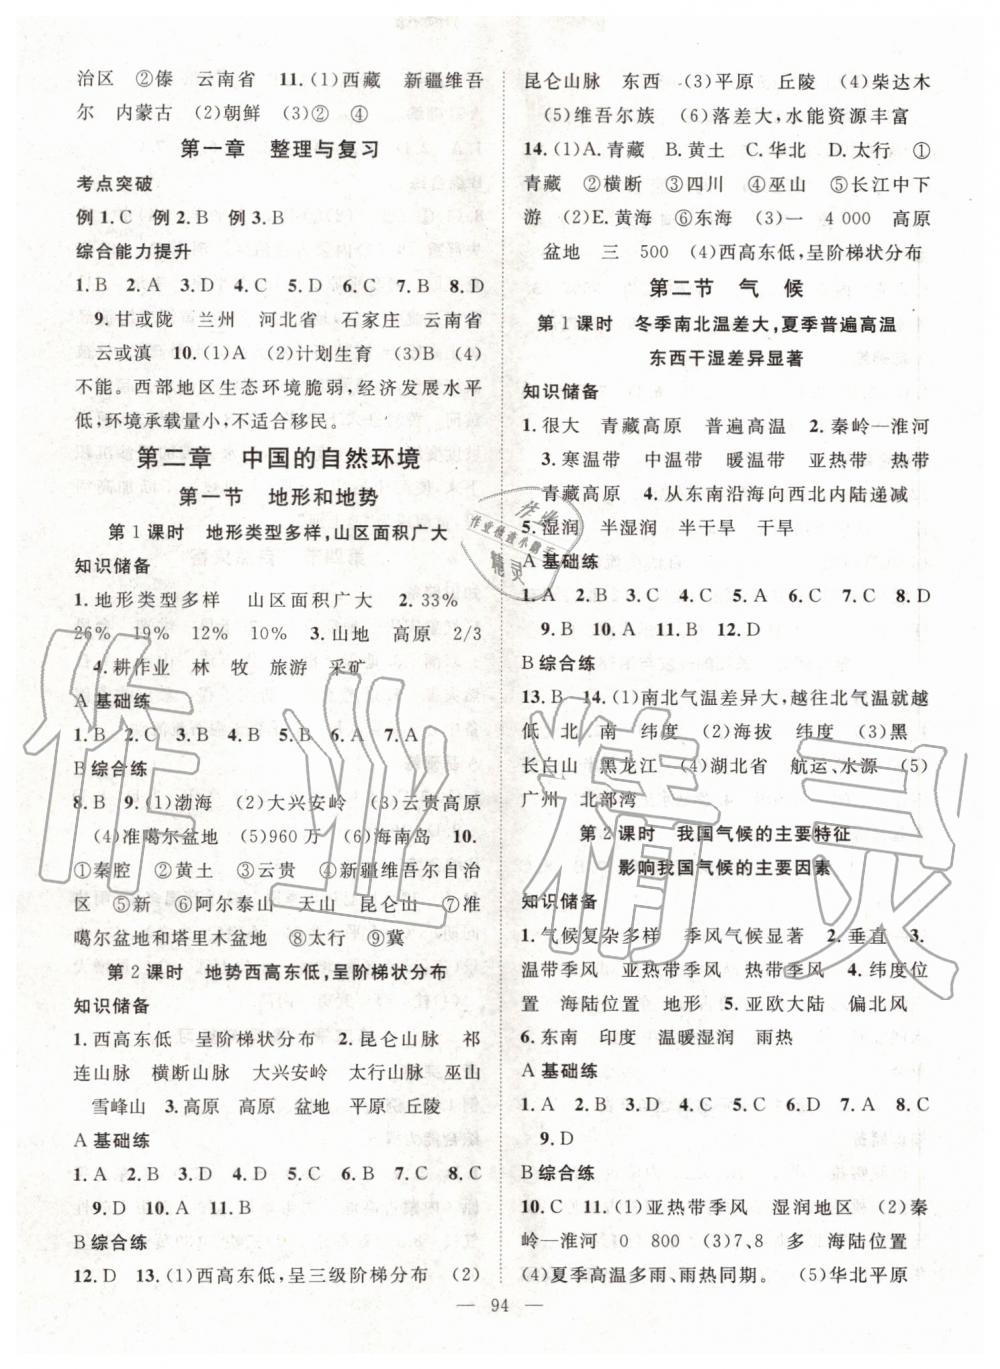 治区　②傣　云南省　11.(1)西藏　新疆维吾
尔　内蒙古　(2)朝鲜　(3)②　④
第一章　整理与复习
考点突破
例 1.C　例 2.B　例 3.B
综合能力提升
1.B　2.A　3.D　4.C　5.D　6.C　7.B　8.D
9.甘或陇　兰州　河北省　石家庄　云南省
云或滇　10.(1)A　(2)计划生育　(3)B　(4)
不能。西部地区生态环境脆弱,经济发展水平
低,环境承载量小,不适合移民。
第二章　中国的自然环境
第一节　地形和地势
第 1 课时　地形类型多样,山区面积广大
知识储备
1.地形类型多样　山区面积广大　2.33%
26%　19%　12%　10%　3.山地　高原　2/3
4.耕作业　林　牧　旅游　采矿
A 基础练
1.B　2.C　3.B　4.B　5.B　6.A　7.A
B 综合练
8.B　9.(1)渤海　(2)大兴安岭　(3)云贵高原
(4)准噶尔盆地　(5)960 万　(6)海南岛　10.
①秦腔　②黄土　③云贵　④新疆维吾尔自治
区　⑤新　⑥阿尔泰山　天山　昆仑山　⑦准
噶尔盆地和塔里木盆地　⑧太行　⑨冀
第 2 课时　地势西高东低,呈阶梯状分布
知识储备
1.西高东低　呈阶梯状分布　2.昆仑山脉　祁
连山脉　横断山脉　大兴安岭　太行山脉　巫山
雪峰山　3.高原　高原　盆地　平原　丘陵
A 基础练
1.A　2.B　3.D　4.D　5.C　6.B　7.C　8.C
9.D　10.A　11.B
B 综合练
12.D　13.(1)西高东低,呈三级阶梯分布　(2)
昆仑山脉　东西　(3)平原　丘陵　(4)柴达木
(5)维吾尔族　(6)落差大,水能资源丰富
14.(1)A.青藏　B.黄土　C.华北　D.太行　①
青藏　②横断　③四川　④巫山　⑤长江中下
游　(2)E.黄海　⑥东海　(3)一　4 000　高原
盆地　三　500　(4)西高东低,呈阶梯状分布
第二节　气　候
第 1 课时　冬季南北温差大,夏季普遍高温
东西干湿差异显著
知识储备
1.很大　青藏高原　普遍高温　2.秦岭—淮河
3.寒温带　中温带　暖温带　亚热带　热带
青藏高原　4.从东南沿海向西北内陆递减
5.湿润　半湿润　半干旱　干旱
A 基础练
1.A　2.B　3.C　4.B　5.D　6.C　7.C　8.D
9.B　10.A　11.B　12.D
B 综合练
13.B　14.(1)南北气温差异大,越往北气温就越
低　北　南　纬度　(2)海拔　纬度　(3)黑
长白山　黑龙江　(4)湖北省　航运、水源　(5)
广州　北部湾
第 2 课时　我国气候的主要特征
影响我国气候的主要因素
知识储备
1.气候复杂多样　季风气候显著　2.垂直　3.
温带季风　亚热带季风　热带季风　4.纬度位
置　海陆位置　地形　5.亚欧大陆　偏北风
6.东南　印度　温暖湿润　雨热
A 基础练
1.A　2.B　3.A　4.C　5.D　6.B　7.A　8.C
9.D
B 综合练
10.C　11.(1)亚热带季风　湿润地区　(2)秦
岭—淮河　0　800　(3)7、8　多　海陆位置
(4)夏季高温多雨、雨热同期。　(5)华北平原
— 94 —
作业
作业检查小助手
精灵
作业精灵